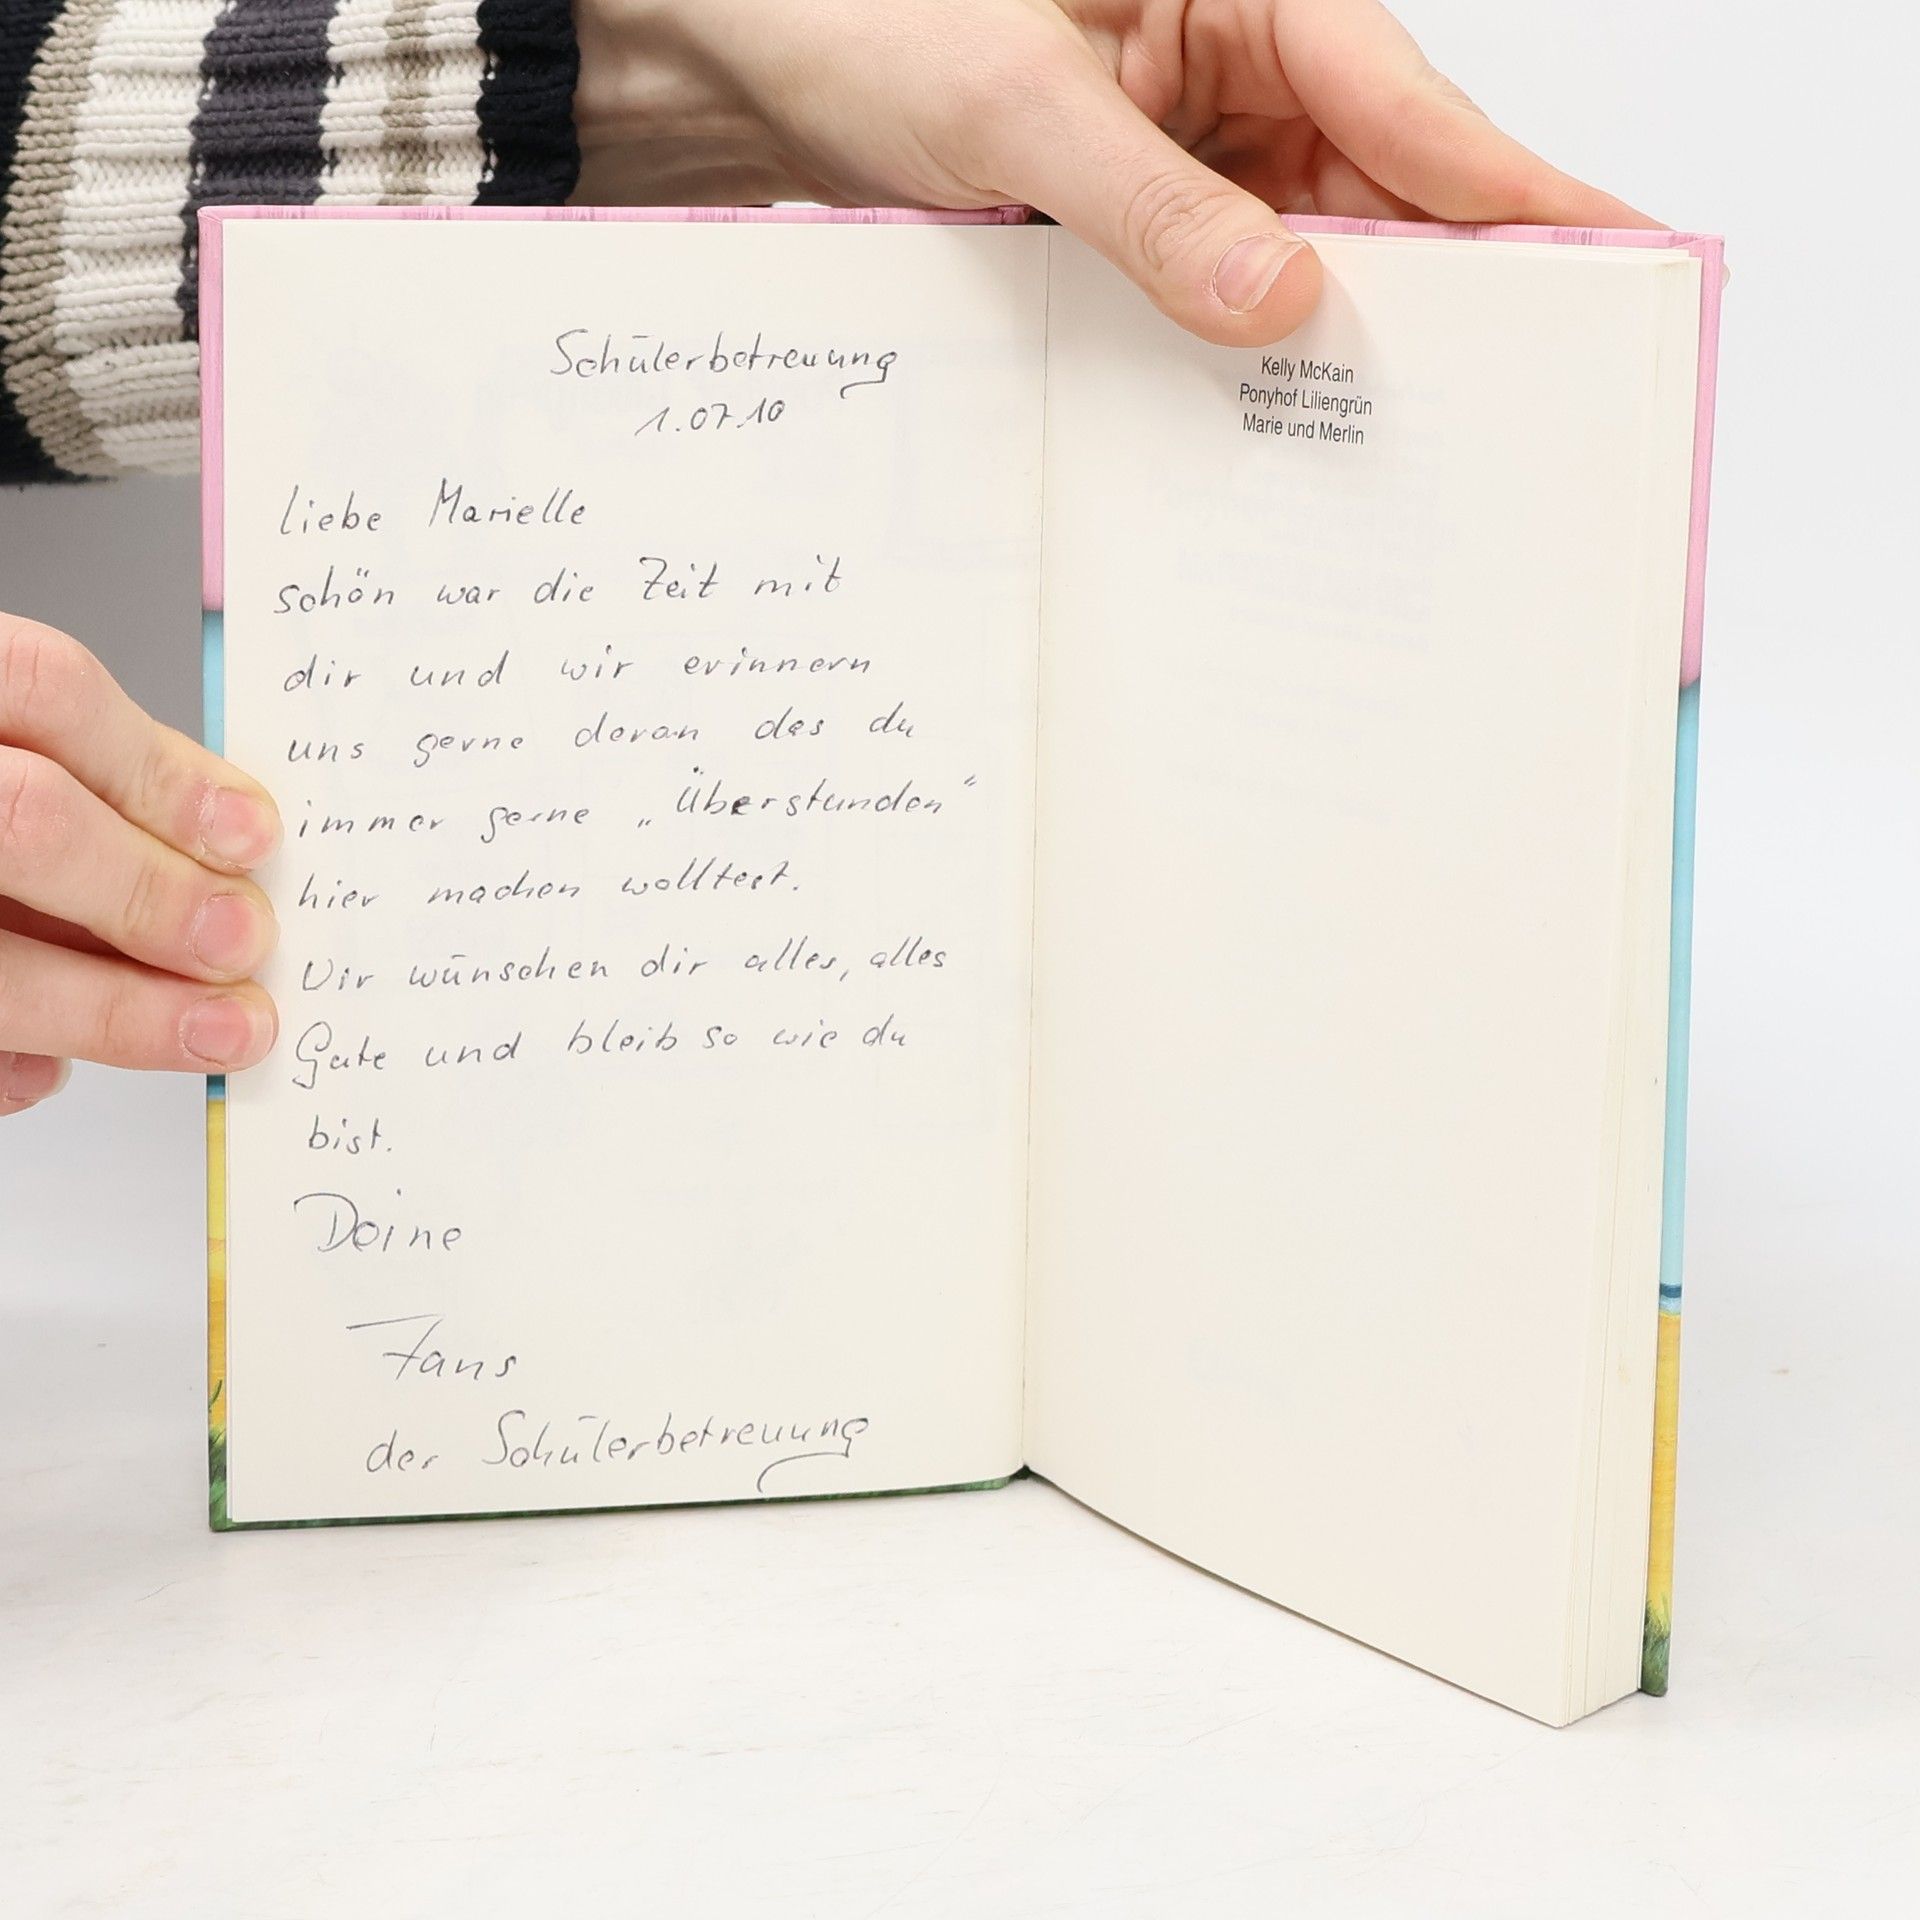 Schülerbetreuung
1.07.10
liebe Marielle
schön war die Zeit mit
dir und wir erinnern
uns gerne daran das du
immer gerne „Überstunden“
hier machen wolltest.
Wir wünschen dir alles, alles
Gute und bleib so wie du
bist.
Deine
Fans
der Schülerbetreuung
Kelly McKain
Ponyhof Liliengrün
Marie und Merlin